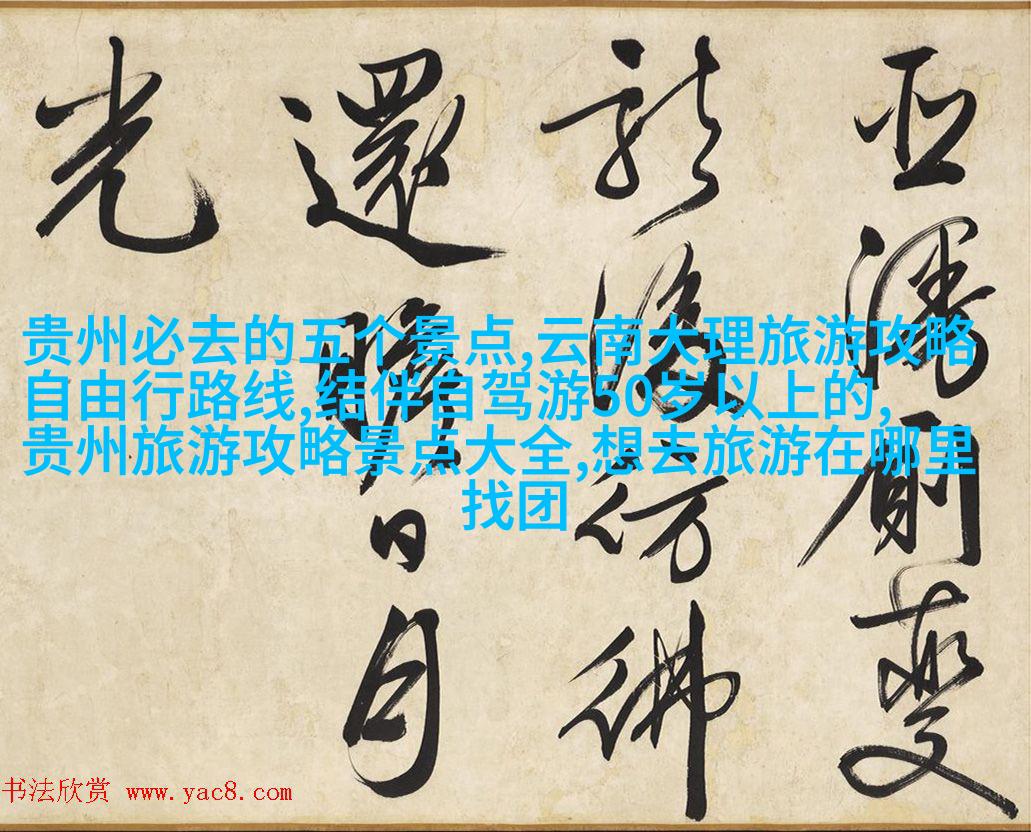 贵州必去的五个景点,云南大理旅游攻略
自由行路线,结伴自驾游50岁以上的,
贵州旅游攻略景点大全,想去旅游在哪里
找团
變
復彷彿
還瞻日月
光
书法欣赏 www.yac8.com